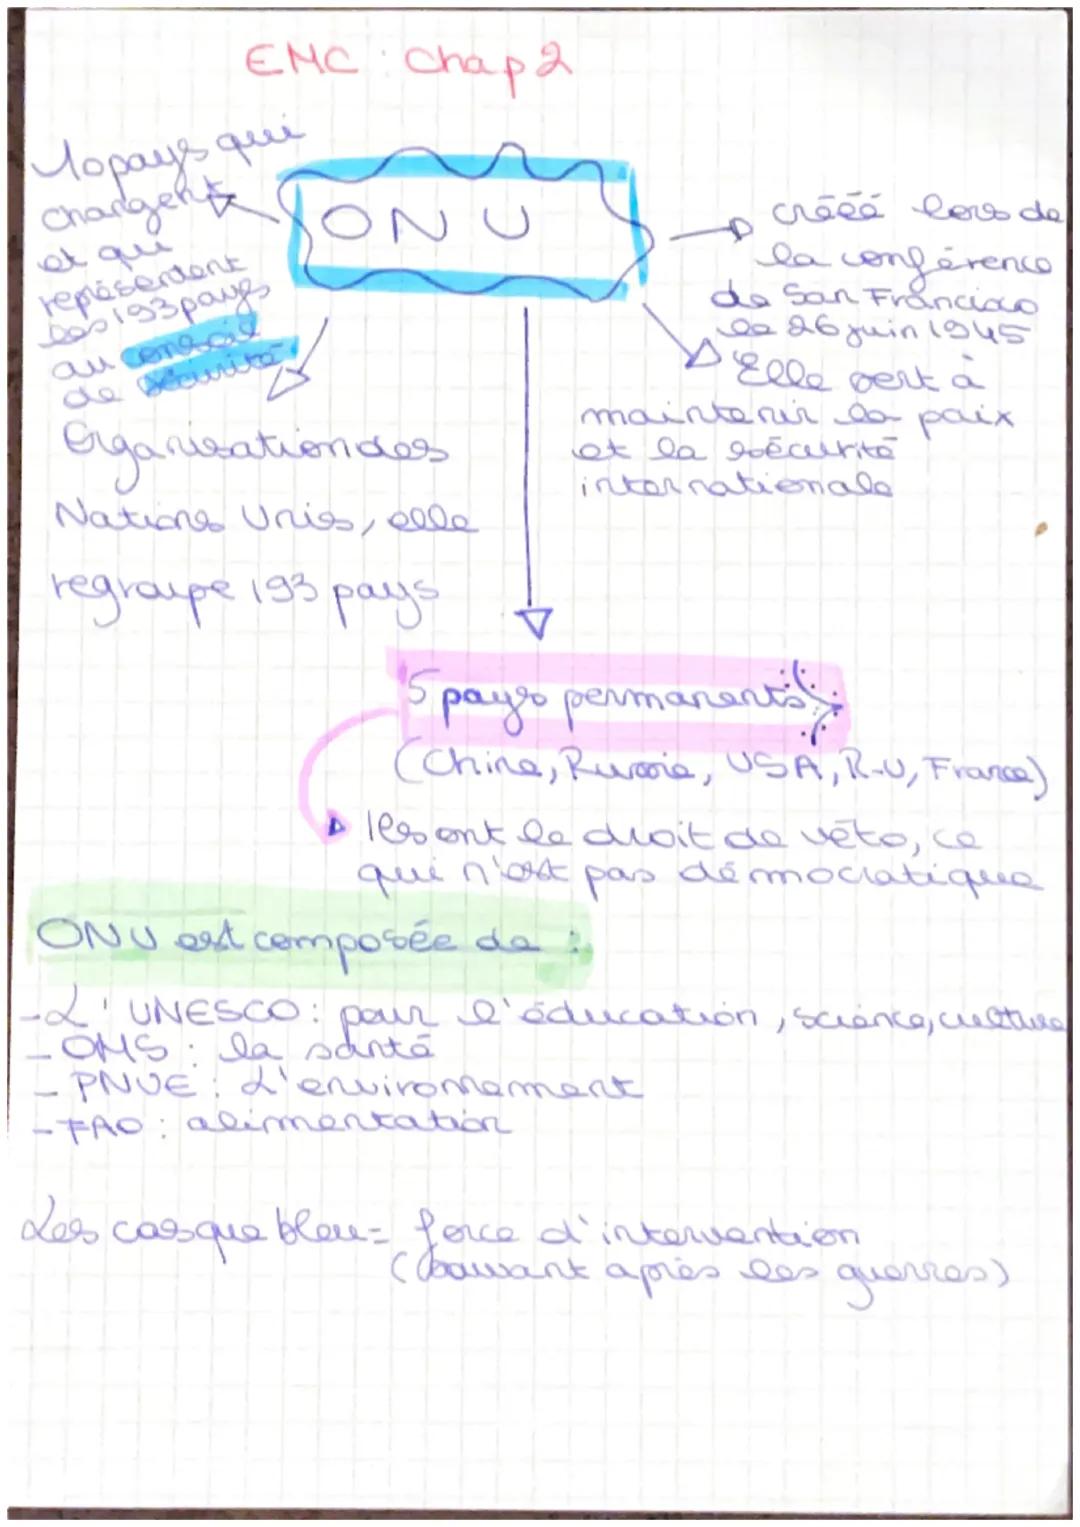 EMC : Chap 2
10 pays qui
changent
et qui
représentent
les 193 pays
au conseil
de sécurité
ONU
créée lors de
la conférence
de San Francisco
le 26 juin 1945
Elle sert à
maintenir la paix
et la sécurité
internationale
Organisation des
Nations Unies, elle
regroupe 193 pays
5 pays permanents
(Chine, Russie, USA, R-U, France)
Ils ont le droit de véto, ce
qui n'est pas démocratique
ONU est composée de :
- L'UNESCO : pour l'éducation, science, culture
- OMS : la santé
- PNUE : L'environnement
- FAO : alimentation
Les casque bleu = force d'intervention
(souvant après les guerres)